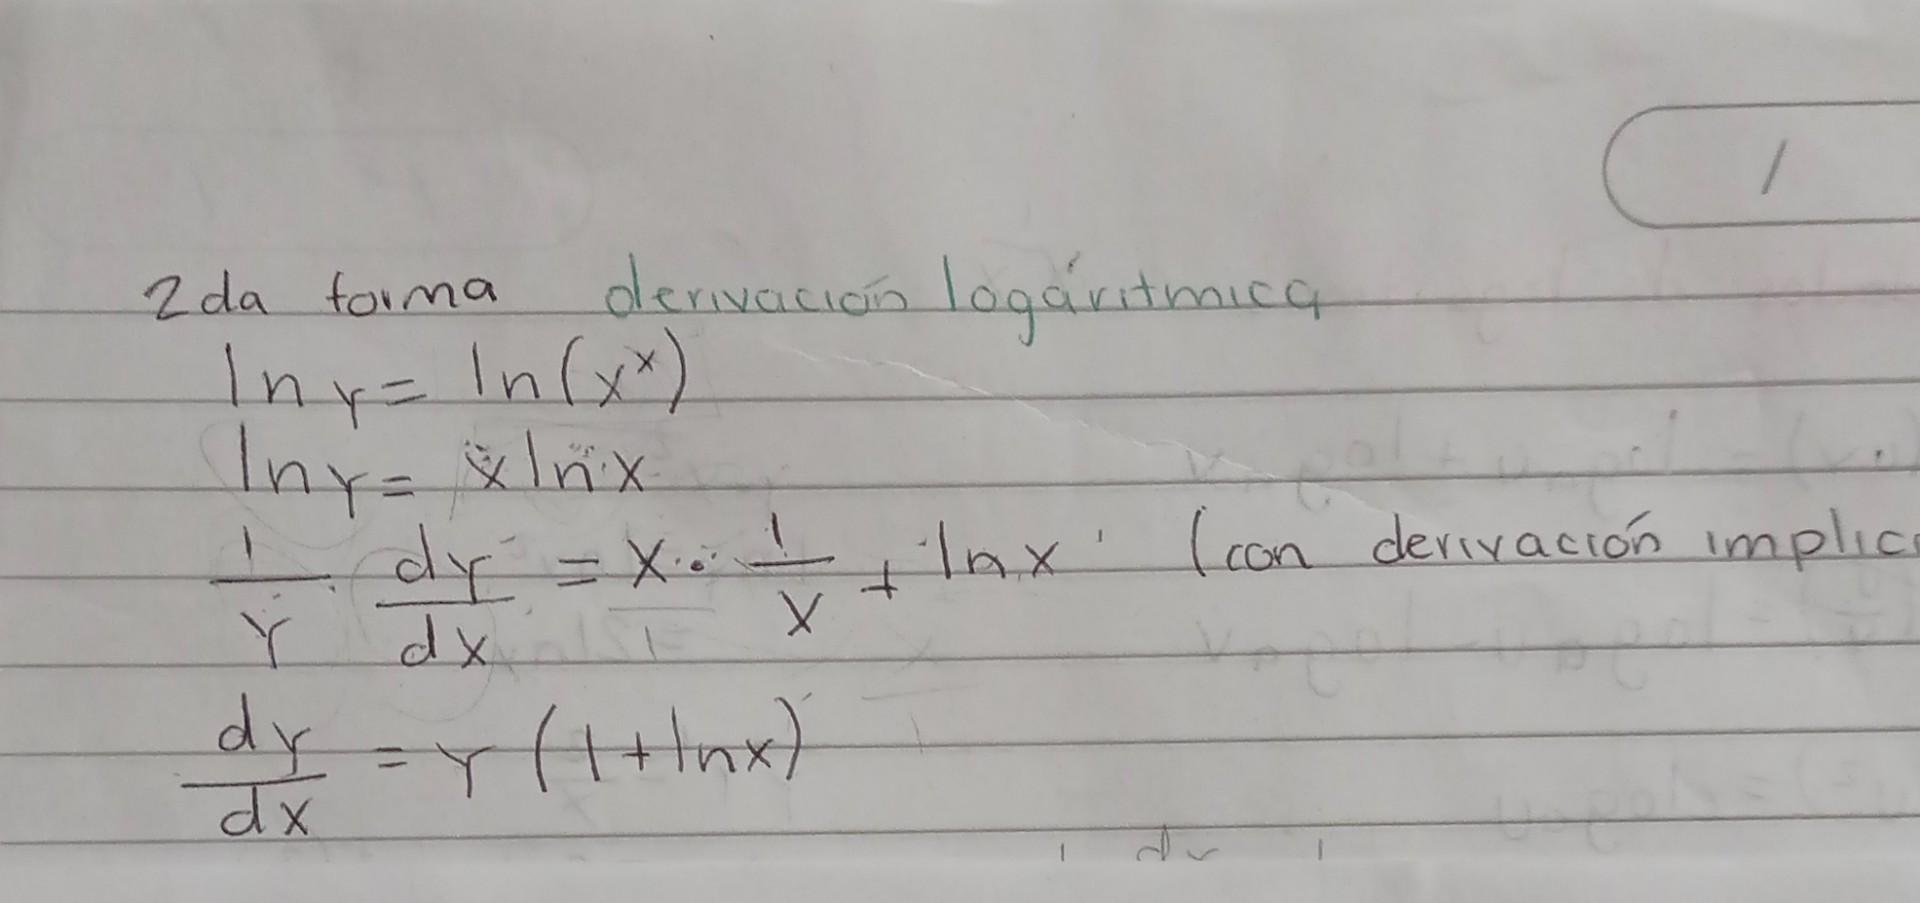 2da forma derivación logáritmica
ln y = ln(x^x)
ln y = x ln x
1/y · dy/dx = x · 1/x + ln x (con derivación implic
dy/dx = y (1 + ln x)